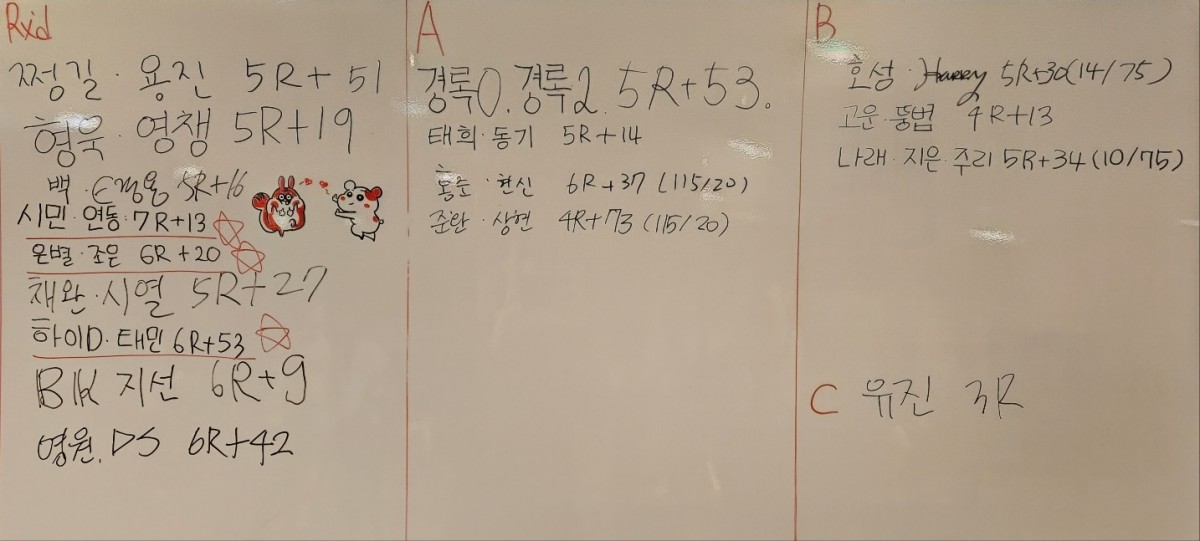 Rxd
쩡길·용진 5R+51
형욱·영챙 5R+19
백·E경용 5R+16
시민·연동·7R+13
은별·조은 6R+20
채완·시열 5R+27
하이D·태민 6R+53
BK 지선 6R+9
영원.DS 6R+42
A
경록0.경록2. 5R+53.
태희·동기 5R+14
홍준·현신 6R+37 (115/20)
준완·상현 4R+73 (115/20)
B
호성·Harry 5R+30(14/75)
고운·뚱법 4R+13
나래·지은·주리 5R+34(10/75)
C 유진 3R